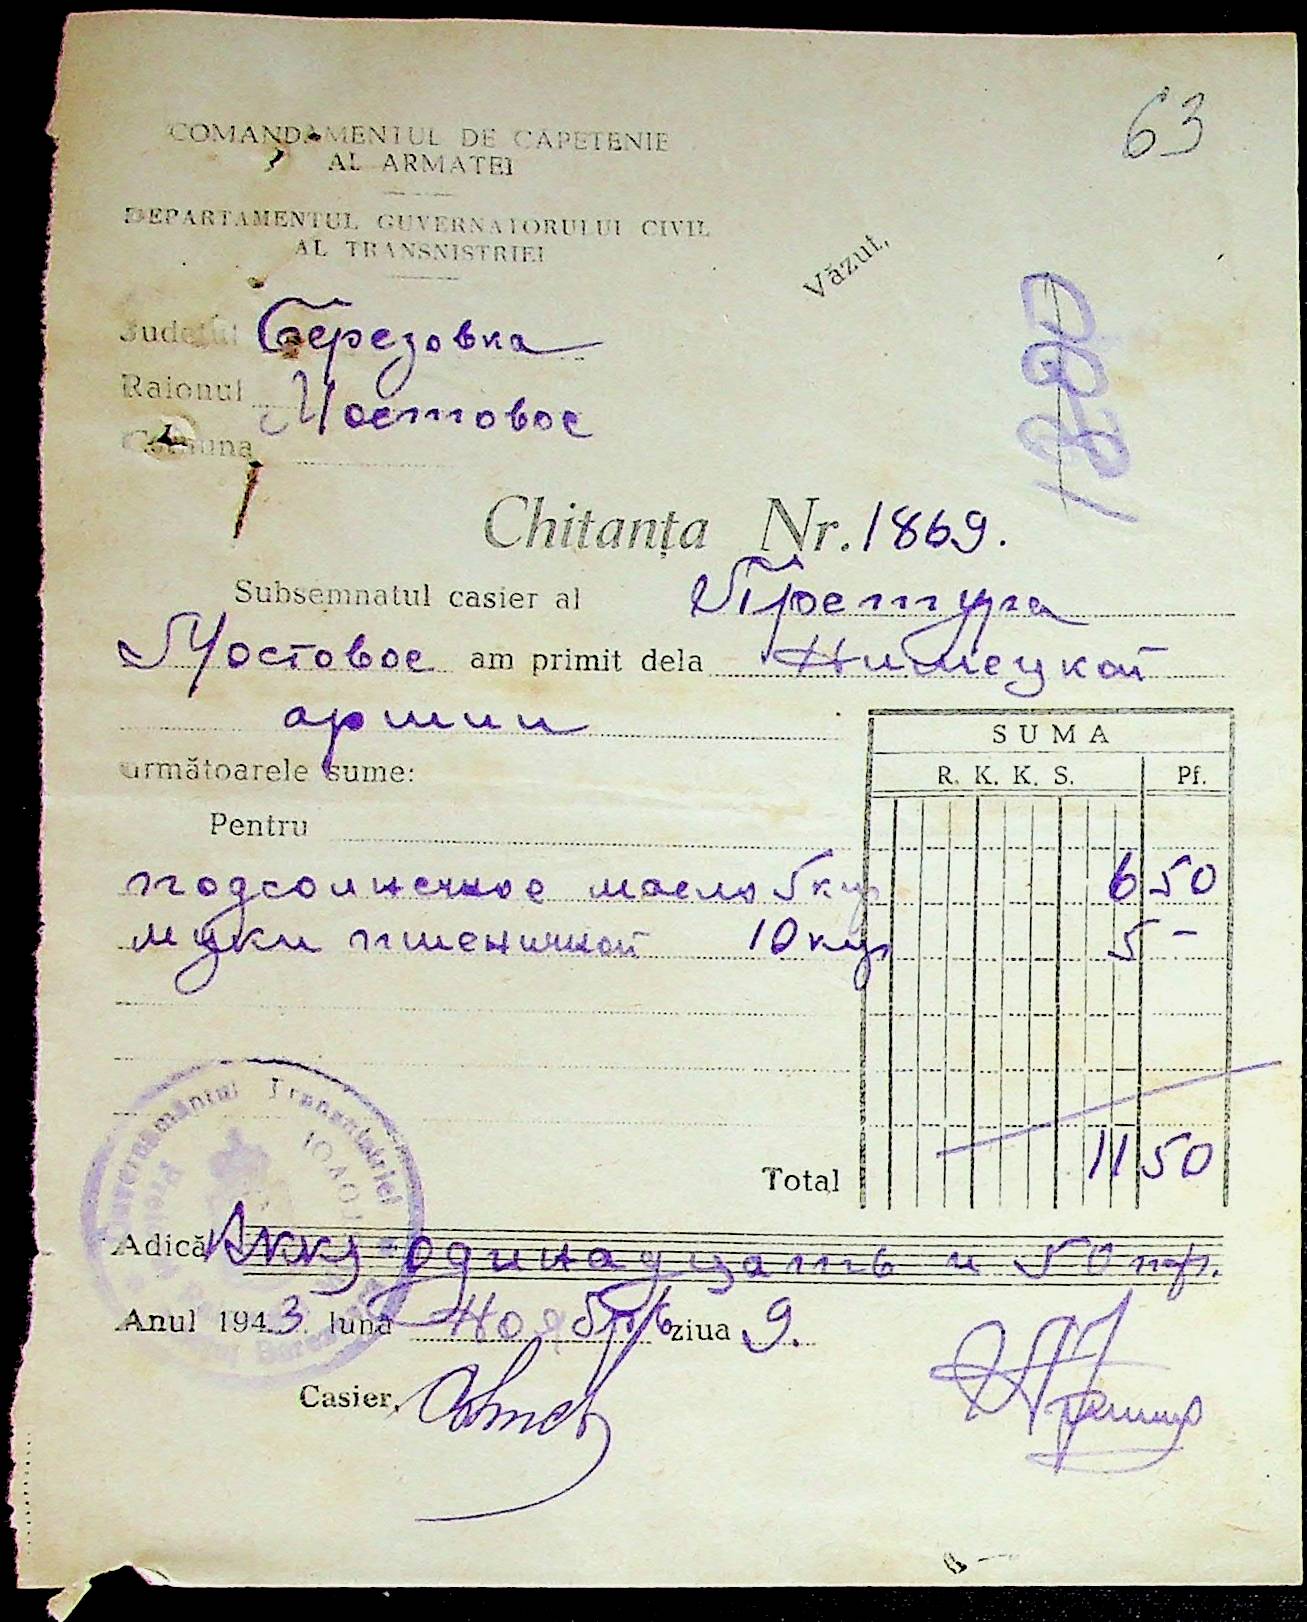 63
COMANDAMENTUL DE CĂPETENIE
AL ARMATEI
DEPARTAMENTUL GUVERNATORULUI CIVIL
AL TRANSNISTRIEI
Văzut,
Județul Березовка
Raionul Мостовое
Comuna
Chitanța Nr. 1869.
Subsemnatul casier al Претура
Мостовое am primit dela Нимецкой
армии
următoarele sume:
SUMA
R. K. K. S. Pf.
Pentru
подсолнечное масло 5 кгр 6 50
муки пшеничной 10 кгр 5 -
Total 11 50
Guvernamântul Transnistriei
Adică Ркк одинадцать и 50 пф.
Anul 1943. luna Ноябрь ziua 9.
Casier,